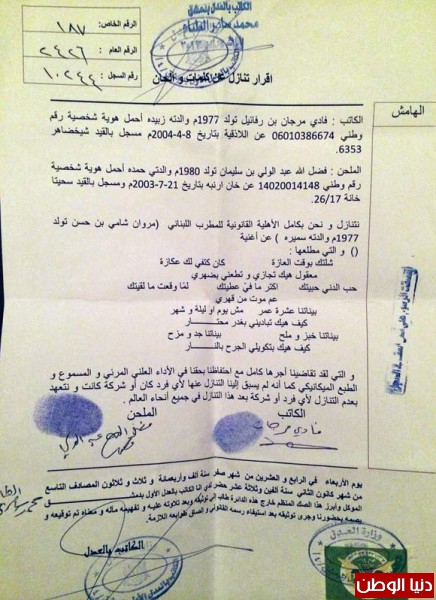 الكاتب بالعدل بدمشق
محمد سامر الطباع
الرقم الخاص: ١٨٧
الرقم العام: ٢٤٢٦
رقم السجل: ١٠٢٤٤
اقرار تنازل عن كلمات و ألحان
الهامش
الكاتب : فادي مرجان بن رفائيل تولد 1977م والدته زبيده أحمل هوية شخصية رقم
وطني 06010386674 عن اللاذقية بتاريخ 8-4-2004م مسجل بالقيد شيخضاهر
6353.
الملحن : فضل الله عبد الولي بن سليمان تولد 1980م والدتي حمده أحمل هوية شخصية
رقم وطني 14020014148 عن خان ارنبه بتاريخ 21-7-2003م ومسجل بالقيد سحيتا
خانة 26/17.
نتنازل و نحن بكامل الأهلية القانونية للمطرب اللبناني (مروان شامي بن حسن تولد
1977م والدته سميره ) عن أغنية
() و التي مطلعها :
شلتك بوقت العازة كان كتفي لك عكازة
معقول هيك تجازي و تطعني بضهري
حب الدني حبيتك اكتر ما فيّ عطيتك لمّا وقعت ما لقيتك
عم موت من قهري
بيناتنا عشرة عمر مش يوم أو ليلة و شهر
كيف هيك تباديني بغدر محتار
بيناتنا خبز و ملح بيناتنا جد و مزح
كيف هيك بتكويلي الجرح بالنار
و التي لقد تقاضينا أجرها كامل مع احتفاظنا بحقنا في الأداء العلني المرئي و المسموع و
الطبع الميكانيكي كما أنه لم يسبق إلينا التنازل عنها لأي فرد كان أو شركة كانت و نتعهد
بعدم التنازل لأي فرد أو شركة بعد هذا التنازل في جميع أنحاء العالم .
الكاتب الملحن
فادي مرجان
يوم الأربعاء في الرابع و العشرين من شهر صفر سنة ألف وأربعمائة و ثلاث و ثلاثون المصادف التاسع
من شهر كانون الثاني سنة ألفين وثلاثة عشر حضر لدي أنا الكاتب بالعدل الأول بدمشق
الموكل وأبرز هذا الصك المنظم خارج هذه الدائرة طالب إلي توثيقه وبعد تلاوته عليه و تفهيمه مآله و معناه تم توقيعه و
بصمه بحضورنا وجرى توثيقه بعد استيفاء رسمه القانوني و الصاق طوابعه اللازمة.
الكاتب بالعدل
وزارة العدل
دنيا الوطن